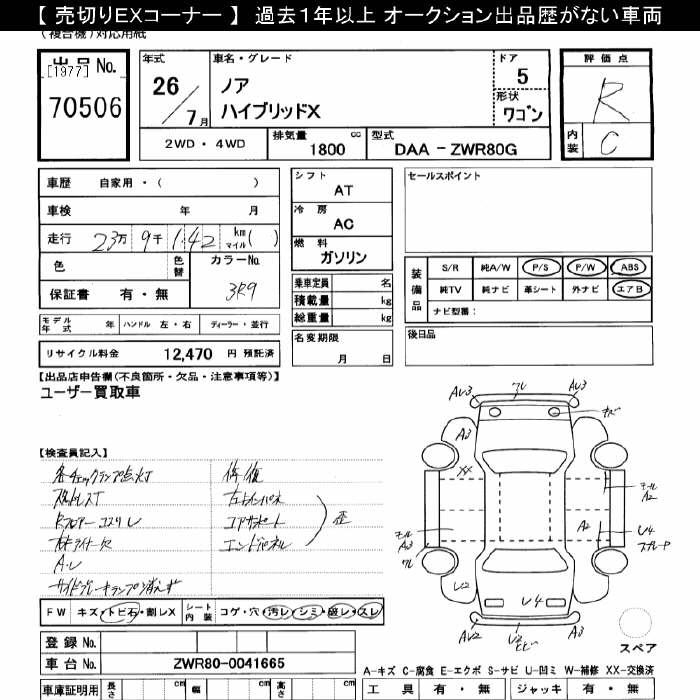 【 売切りEXコーナー 】 過去１年以上 オークション出品歴がない車両
(複合機)対応用紙
出品 No.
[1977]
70506
年式
26/7月
車名・グレード
ノア
ハイブリッドX
ドア
5
形状
ワゴン
評価点
R
内装
C
2WD ・ 4WD
排気量 1800 cc
型式 DAA － ZWR80G
車歴 自家用 ・（ ）
車検 年 月
走行 23万 9千 142 km マイル( )
色
色替
カラーNo.
3R9
保証書 有 ・ 無
シフト
AT
冷房
AC
燃料
ガソリン
乗車定員 名
積載量 kg
総重量 kg
セールスポイント
装備品
S/R 純A/W P/S P/W ABS
純TV 純ナビ 革シート 外ナビ エアB
ナビ型番：
モデル年式 年 ハンドル 左 ・ 右 ディーラー ・ 並行
名変期限
月 日
後日品
リサイクル料金 12,470 円 預託済
【出品店申告欄(不良箇所・欠品・注意事項等)】
ユーザー買取車
【検査員記入】
各チェックランプ点灯 修復
コアサポート
エンドパネル
歪
サイドブレーキランプ消えず
AU3 ワレ AU3
A3 キズ
XX
モール
A2
モール
A3
ワレ
A2 U4
U2 U4
AU2 A3
FW キズ・トビ石・割レX シート内装 コゲ・穴・汚レ・シミ・破レ・スレ
登録 No.
車台 No. ZWR80-0041665
車庫証明用 長さ cm 幅 cm 高さ cm
スペア
A-キズ C-腐食 E-エクボ S-サビ U-凹ミ W-補修 XX-交換済
工具 有 ・ 無 ジャッキ 有 ・ 無